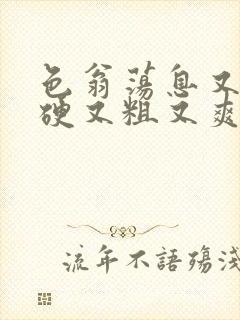 色翁荡息又
硬又粗又爽
流年不語殤淺